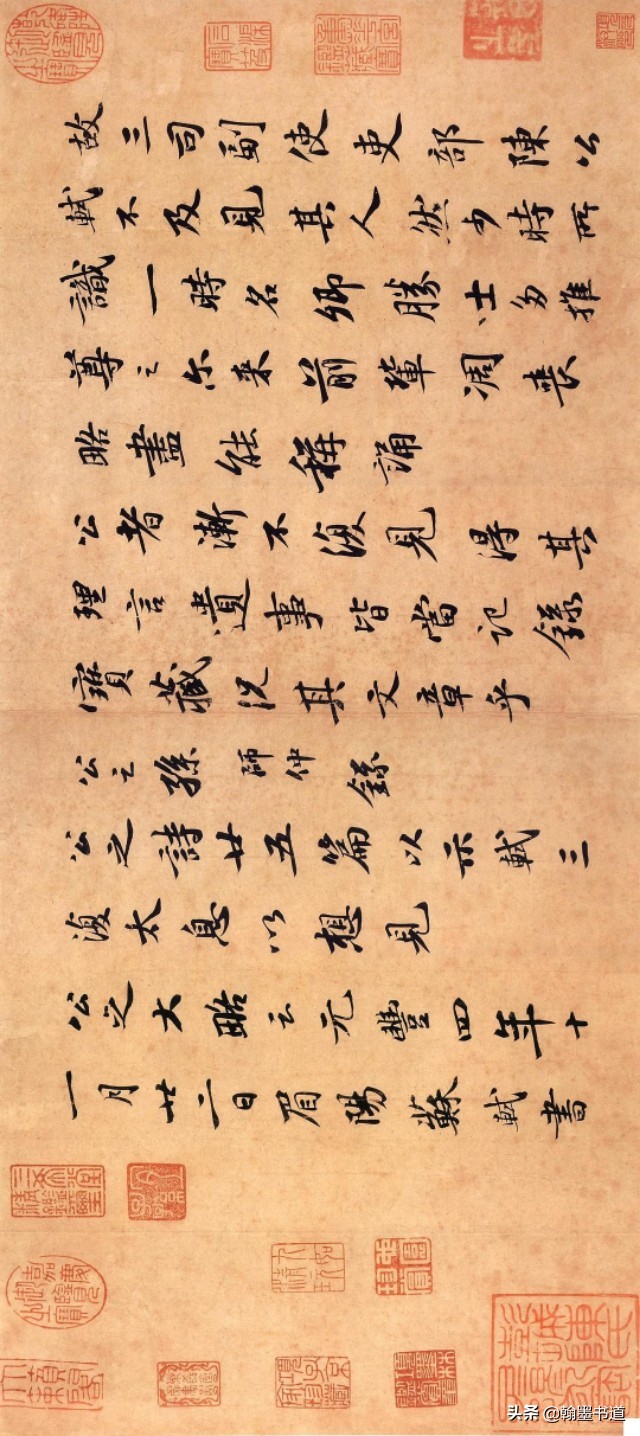 故三司副使吏部陳公
軾不及見其人然少時所
識一時名卿勝士多推
尊之尔来前輩凋喪
略盡能稱誦
公者漸不復見得其
理言遺事皆當記錄
寶藏况其文章乎
公之孫師仲錄
公之詩廿五篇以示軾三
復太息以想見
公之大略云元豐四年十
一月廿二日眉陽蘇軾書
头条 @翰墨书道